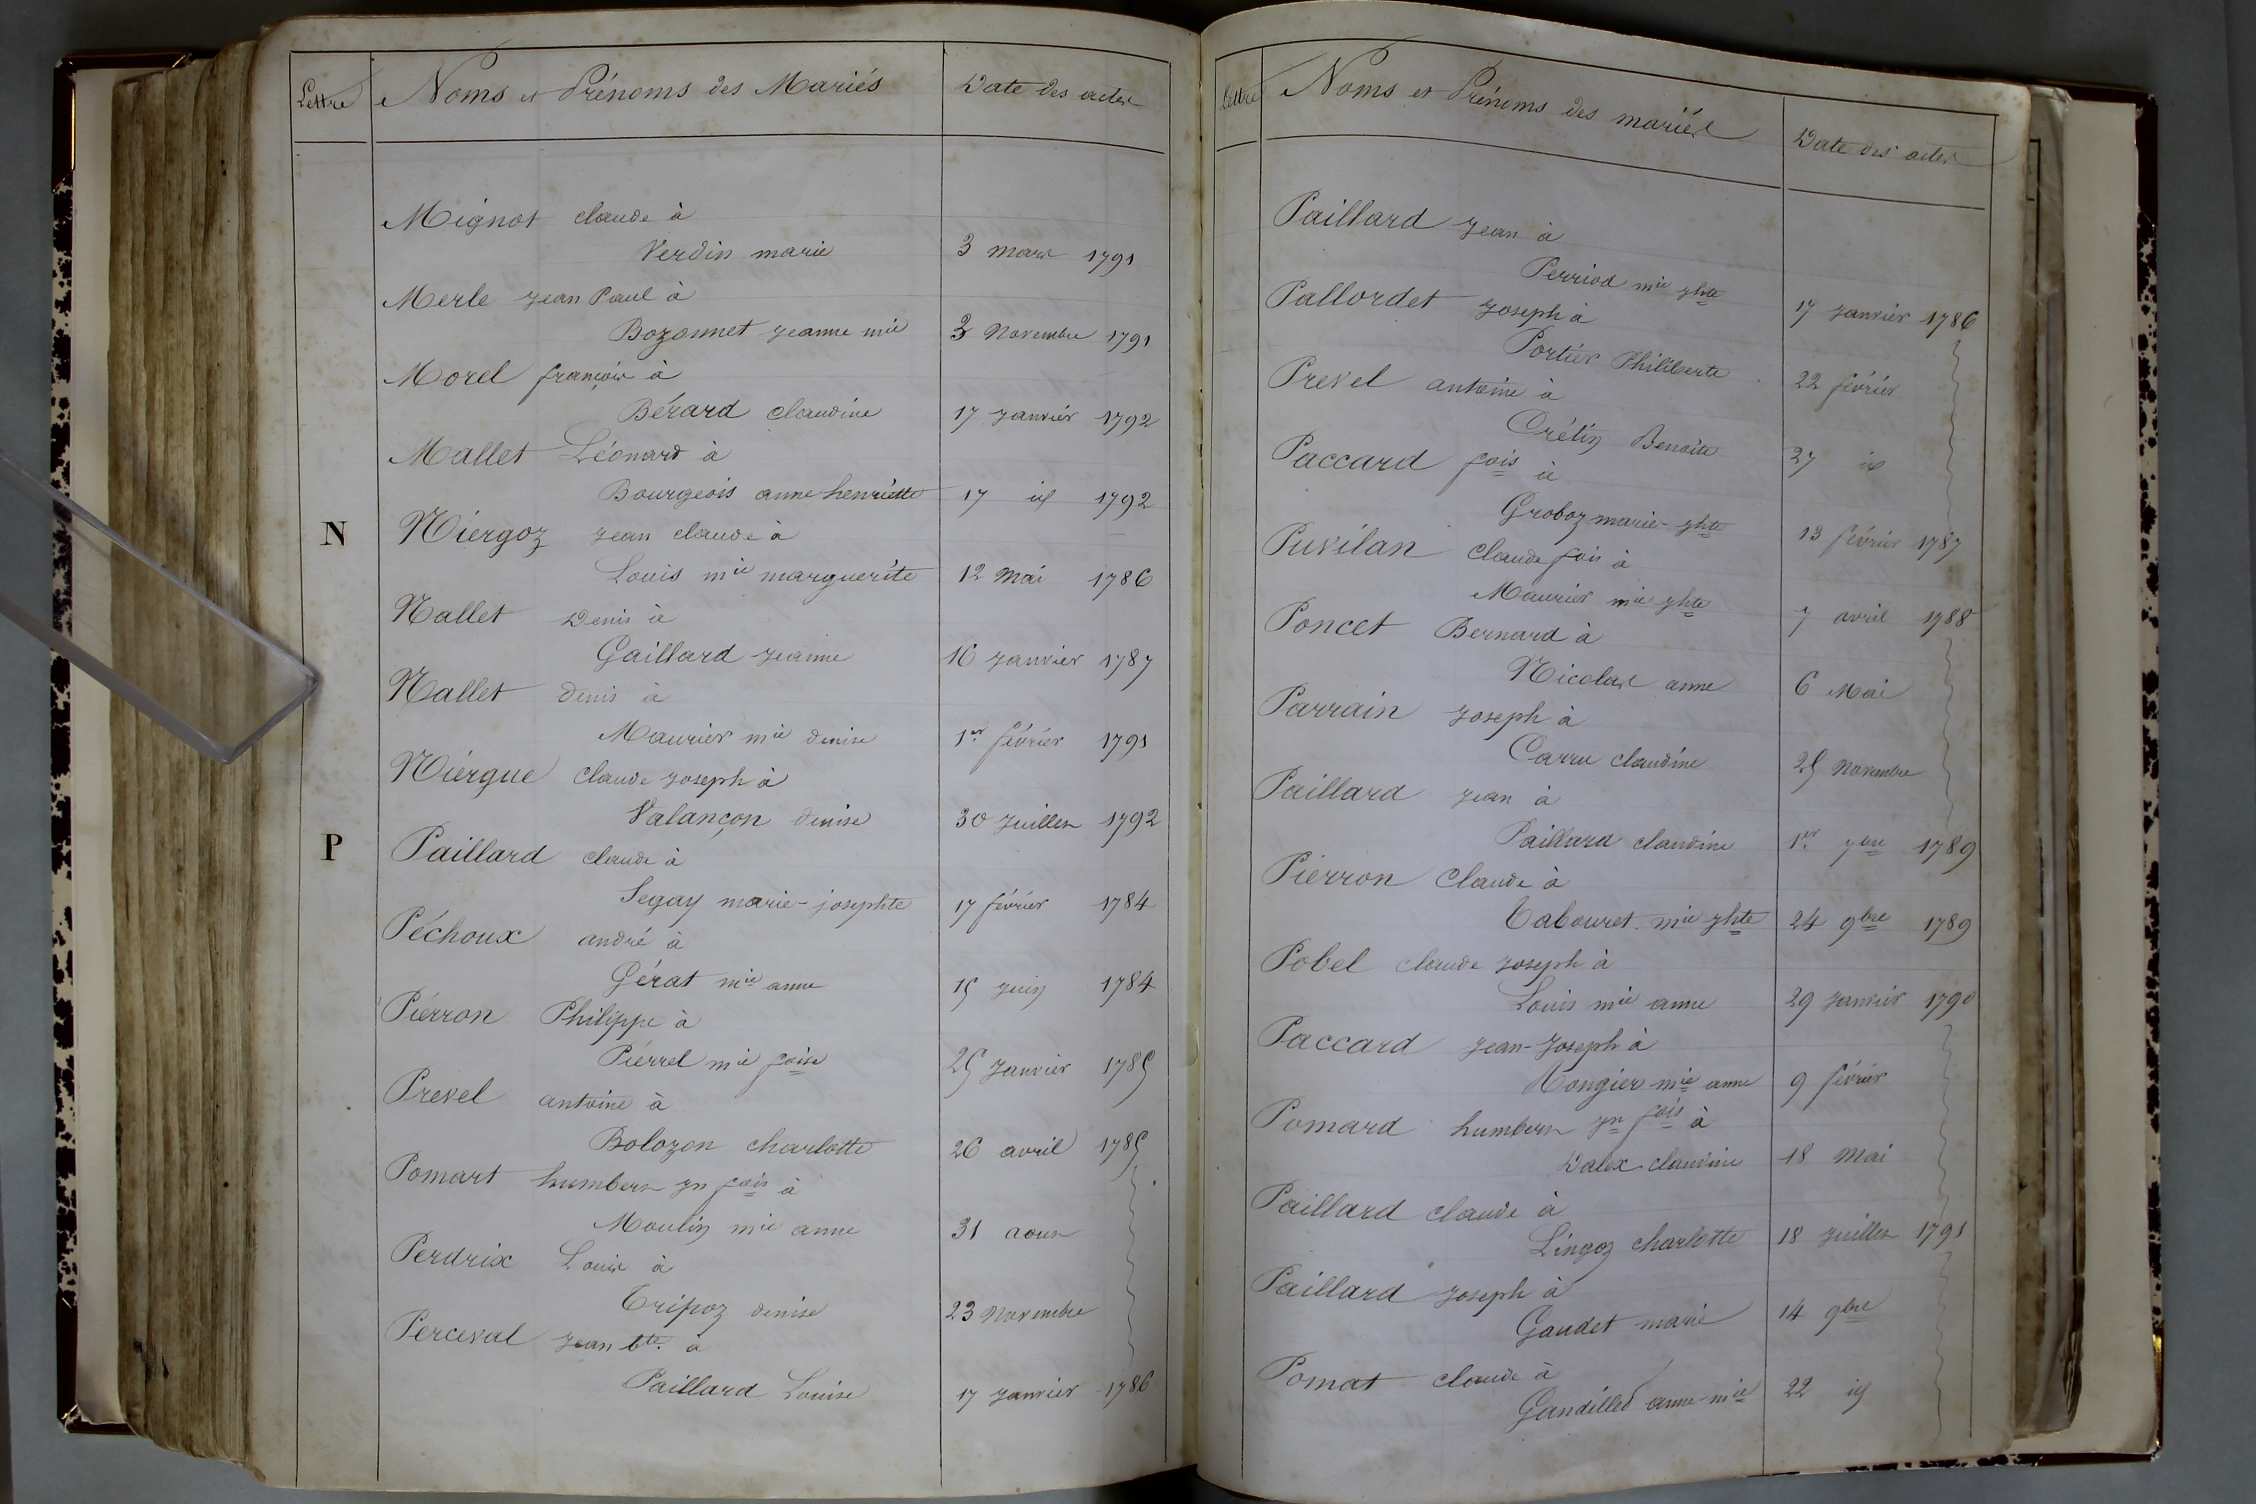 Lettre Noms et Prénoms des Mariés Date des actes
Mignot claude à
Verdin marie 3 mars 1791
Merle jean Paul à
Bozonnet jeanne mie 3 Novembre 1791
Morel françois à
Bérard claudine 17 janvier 1792
Mallet Léonard à
Bourgeois anne henriette 17 id 1792
N Niergoz jean claude à
Louis mie marguerite 12 Mai 1786
Nallet Denis à
Gaillard jeanne 16 janvier 1787
Nallet denis à
Maurier mie denise 1er février 1791
Niergue claude joseph à
Valançon denise 30 juillet 1792
P Paillard claude à
Segay marie-josephte 17 février 1784
Péchoux andré à
Gérat mie anne 15 juin 1784
Piérron Philippe à
Piérrel mie foise 25 Janvier 1785
Prevel antoine à
Bolozon charlotte 26 avril 1785
Pomart humbert jn fois à
Moulin mie anne 31 aout
Perdrix Louis à
Tripoz denise 23 Novembre
Perceval jean bte à
Paillard Louise 17 janvier 1786
Lettre Noms et Prénoms des mariés Date des actes
Paillard jean à
Perriod mie jhte 17 janvier 1786
Pallordet joseph à
Portier Philiberte 22 février
Prevel antoine à
Crétin Benoite 27 id
Paccard fois à
Groboz marie-jhte 13 février 1787
Puvilan claude fois à
Maurier mie jhte 7 avril 1788
Poncet Bernard à
Nicolas anne 6 Mai
Parrain joseph à
Carru claudine 25 Novembre
Paillard jean à
Paillard claudine 1er 7bre 1789
Piérron Claude à
Tabouret mie jhte 24 9bre 1789
Pobel claude joseph à
Louis mie anne 29 janvier 1790
Paccard jean-Joseph à
Rongier mie anne 9 février
Pomard humbert jn fois à
Dalex claudine 18 Mai
Paillard claude à
Lingoz charlotte 18 juillet 1791
Paillard joseph à
Gaudet marie 14 9bre
Pomat claude à
Gandillet anne-mie 22 id